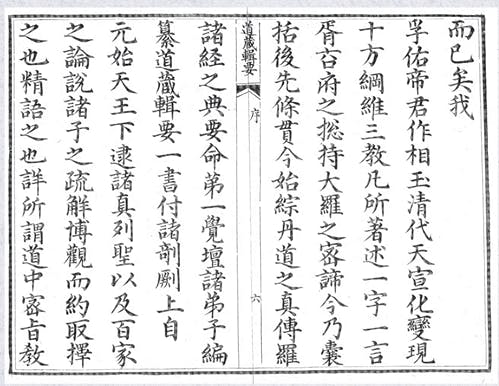 而已矣我
孚佑帝君作相玉清代天宣化變現
十方綱維三教凡所著述一字一言
胥苔府之総持大羅之宻諦今乃囊
括後先條貫今始綜丹道之真傳羅
道蔵輯要
序
六
諸経之典要命第一覺壇諸弟子編
纂道蔵輯要一書付諸剞劂上自
元始天王下逮諸真列聖以及百家
之論說諸子之疏解博觀而約取擇
之也精語之也詳所謂道中宻旨教